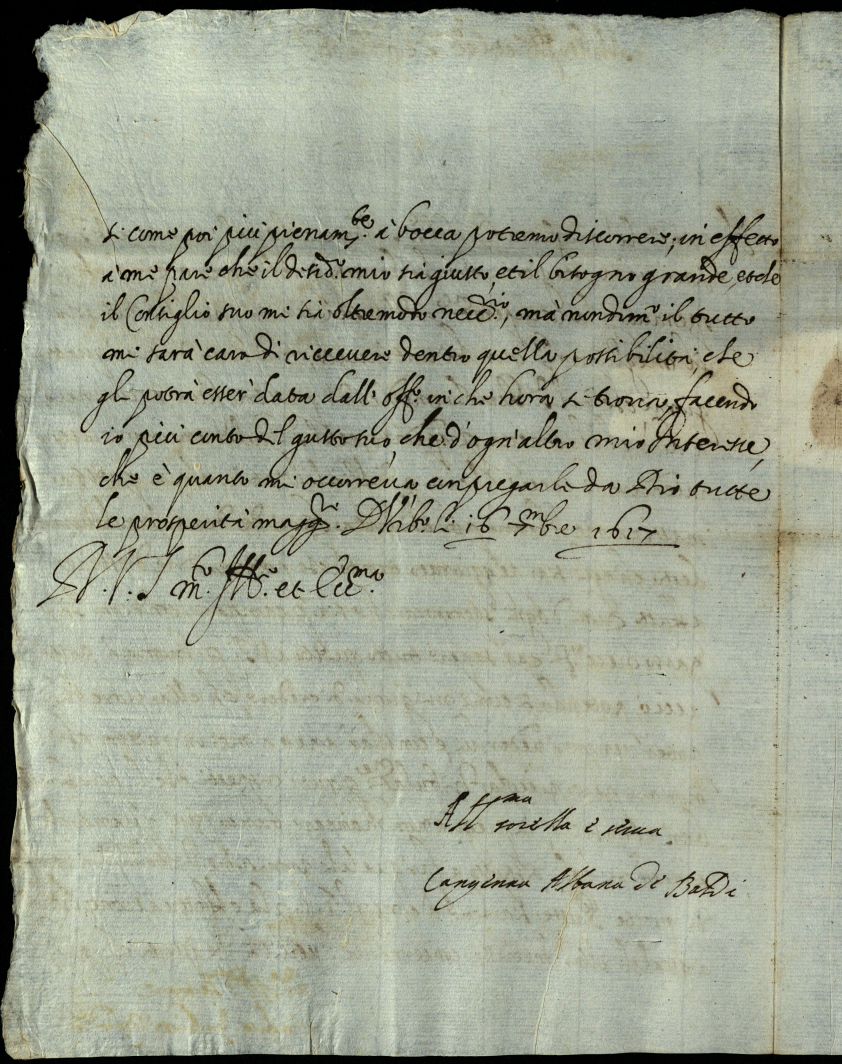 si come poi più pienam.te à bocca potremo discorrere; in effetto
à me pare che il desid.o mio sia giusto, et il bisogno grande, et che
il Consiglio suo mi sia oltremodo necc.rio, mà nondim.o il tutto
mi sarà caro di riccevere dentro quella possibilità, che
gli potrà esser' data dall' off.o in che hora si trova, facendo
io più conto del gusto suo, che d'ogn'altro mio Interesse,
che è quanto mi occorreva con pregarle da Dio tutte
le prosperità magg.ri. Di 16 7mbre 1617
D. V. S. m.o Ill.e et Ecc.ma
Aff.ma sorella e serva
Albana di Bardi